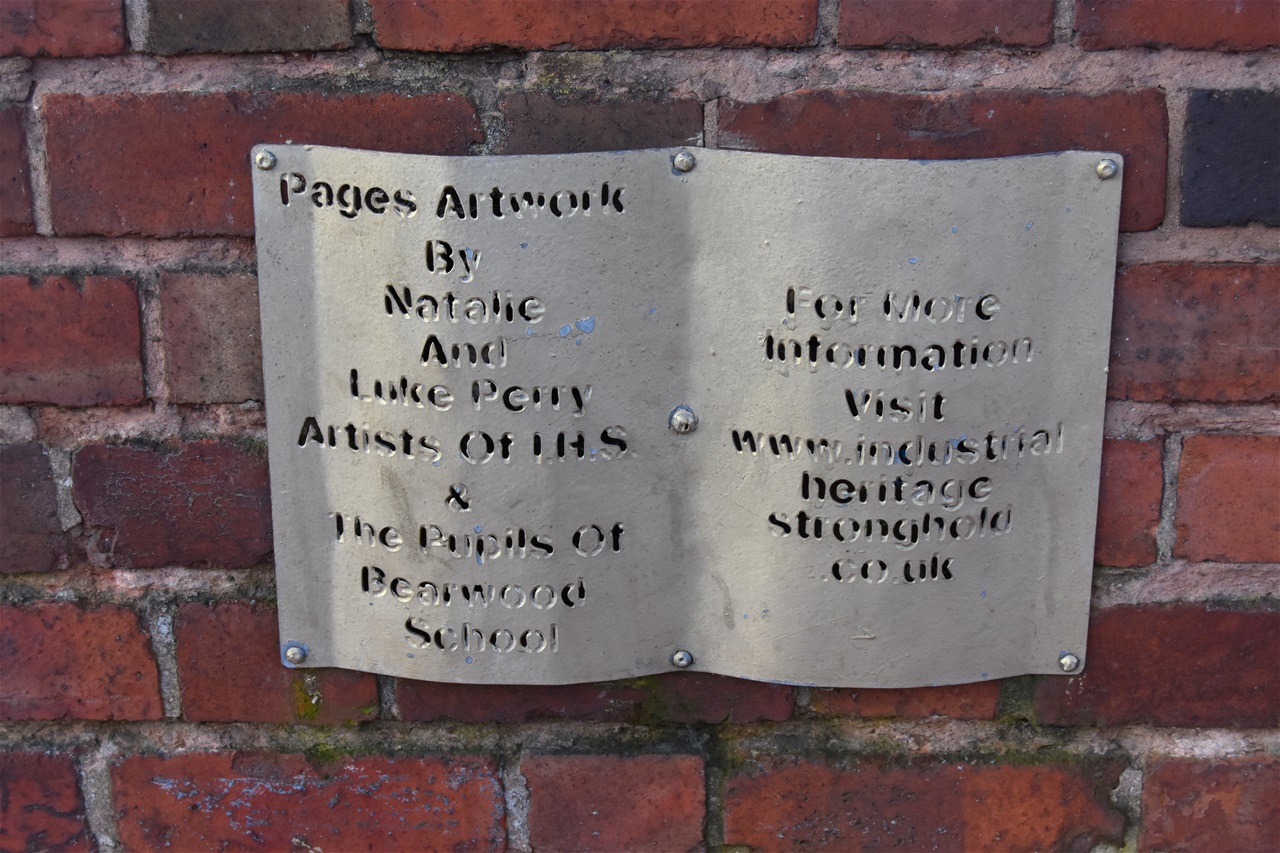 Pages Artwork
By
Natalie
And
Luke Perry
Artists Of I.H.S.
&
The Pupils Of
Bearwood
School
For More
Information
Visit
www.industrial
heritage
stronghold
.co.uk